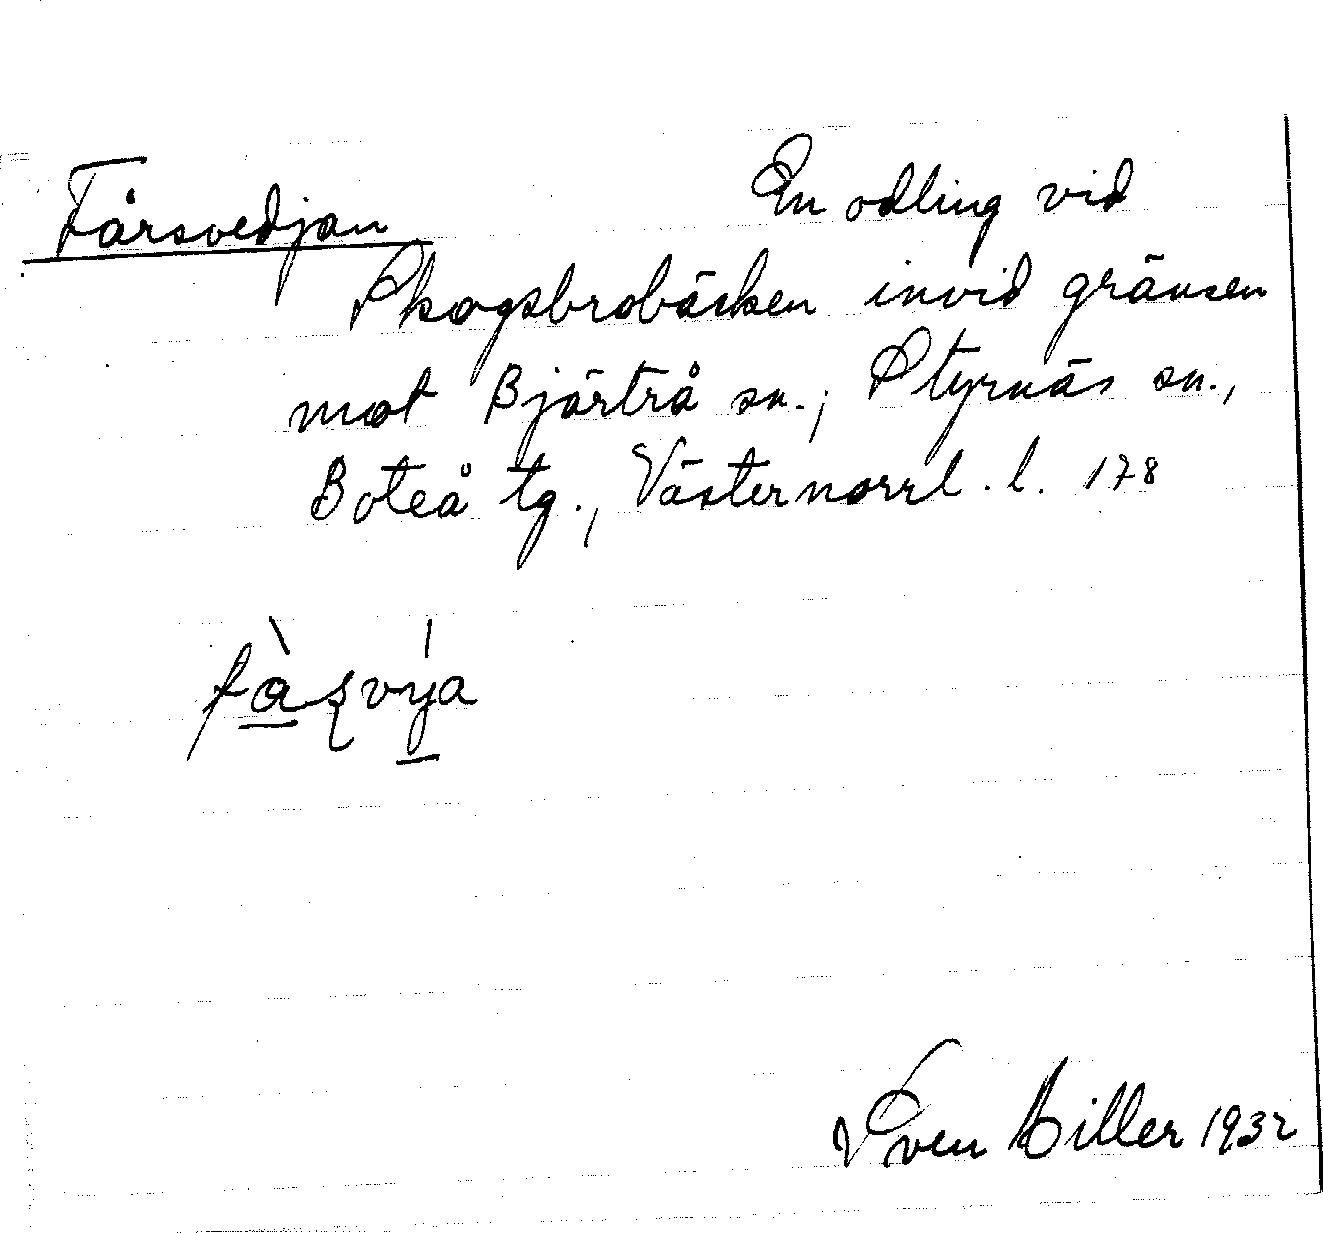 Fårsvedjan
En odling vid
Skogsbrobäcken invid gränsen
mot Bjärtrå sn.; Styrnäs sn.,
Boteå tg., Västernorrl. l. 178
Sven Hiller 1932